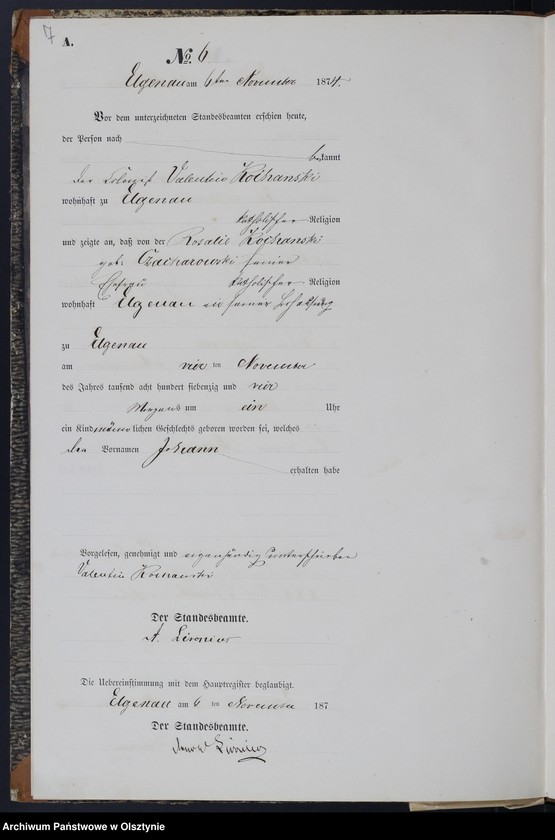 7
A.
No. 6
Elgenau am 6ten November 1874.
Vor dem unterzeichneten Standesbeamten erschien heute,
der Person nach
bekannt
der Valentin Kochanski
wohnhaft zu Elgenau
katholischer Religion
und zeigte an, daß von der Rosalie Kochanski
geb. Czacharowski seiner
Ehefrau katholischer Religion
wohnhaft Elgenau in seiner Behausung
zu Elgenau
am vier ten November
des Jahres tausend acht hundert siebenzig und vier
Morgens um ein Uhr
ein Kind männlichen Geschlechts geboren worden sei, welches
den Vornamen Johann
erhalten habe
Vorgelesen, genehmigt und eigenhändig unterschrieben
Valentin Kochanski
Der Standesbeamte.
A. Lironius
Die Uebereinstimmung mit dem Hauptregister beglaubigt.
Elgenau am 6 ten November 187
Der Standesbeamte.
Lironius
Archiwum Państwowe w Olsztynie